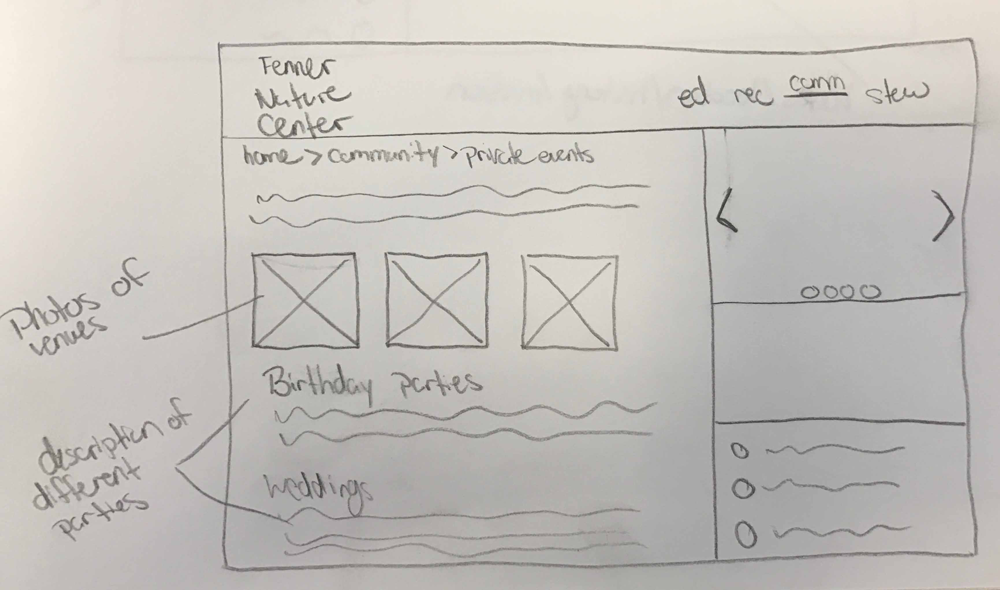 Fenner
Nature
Center
ed rec comm stew
home > community > private events
Photos of
venues
Birthday parties
description of
different
parties
Weddings